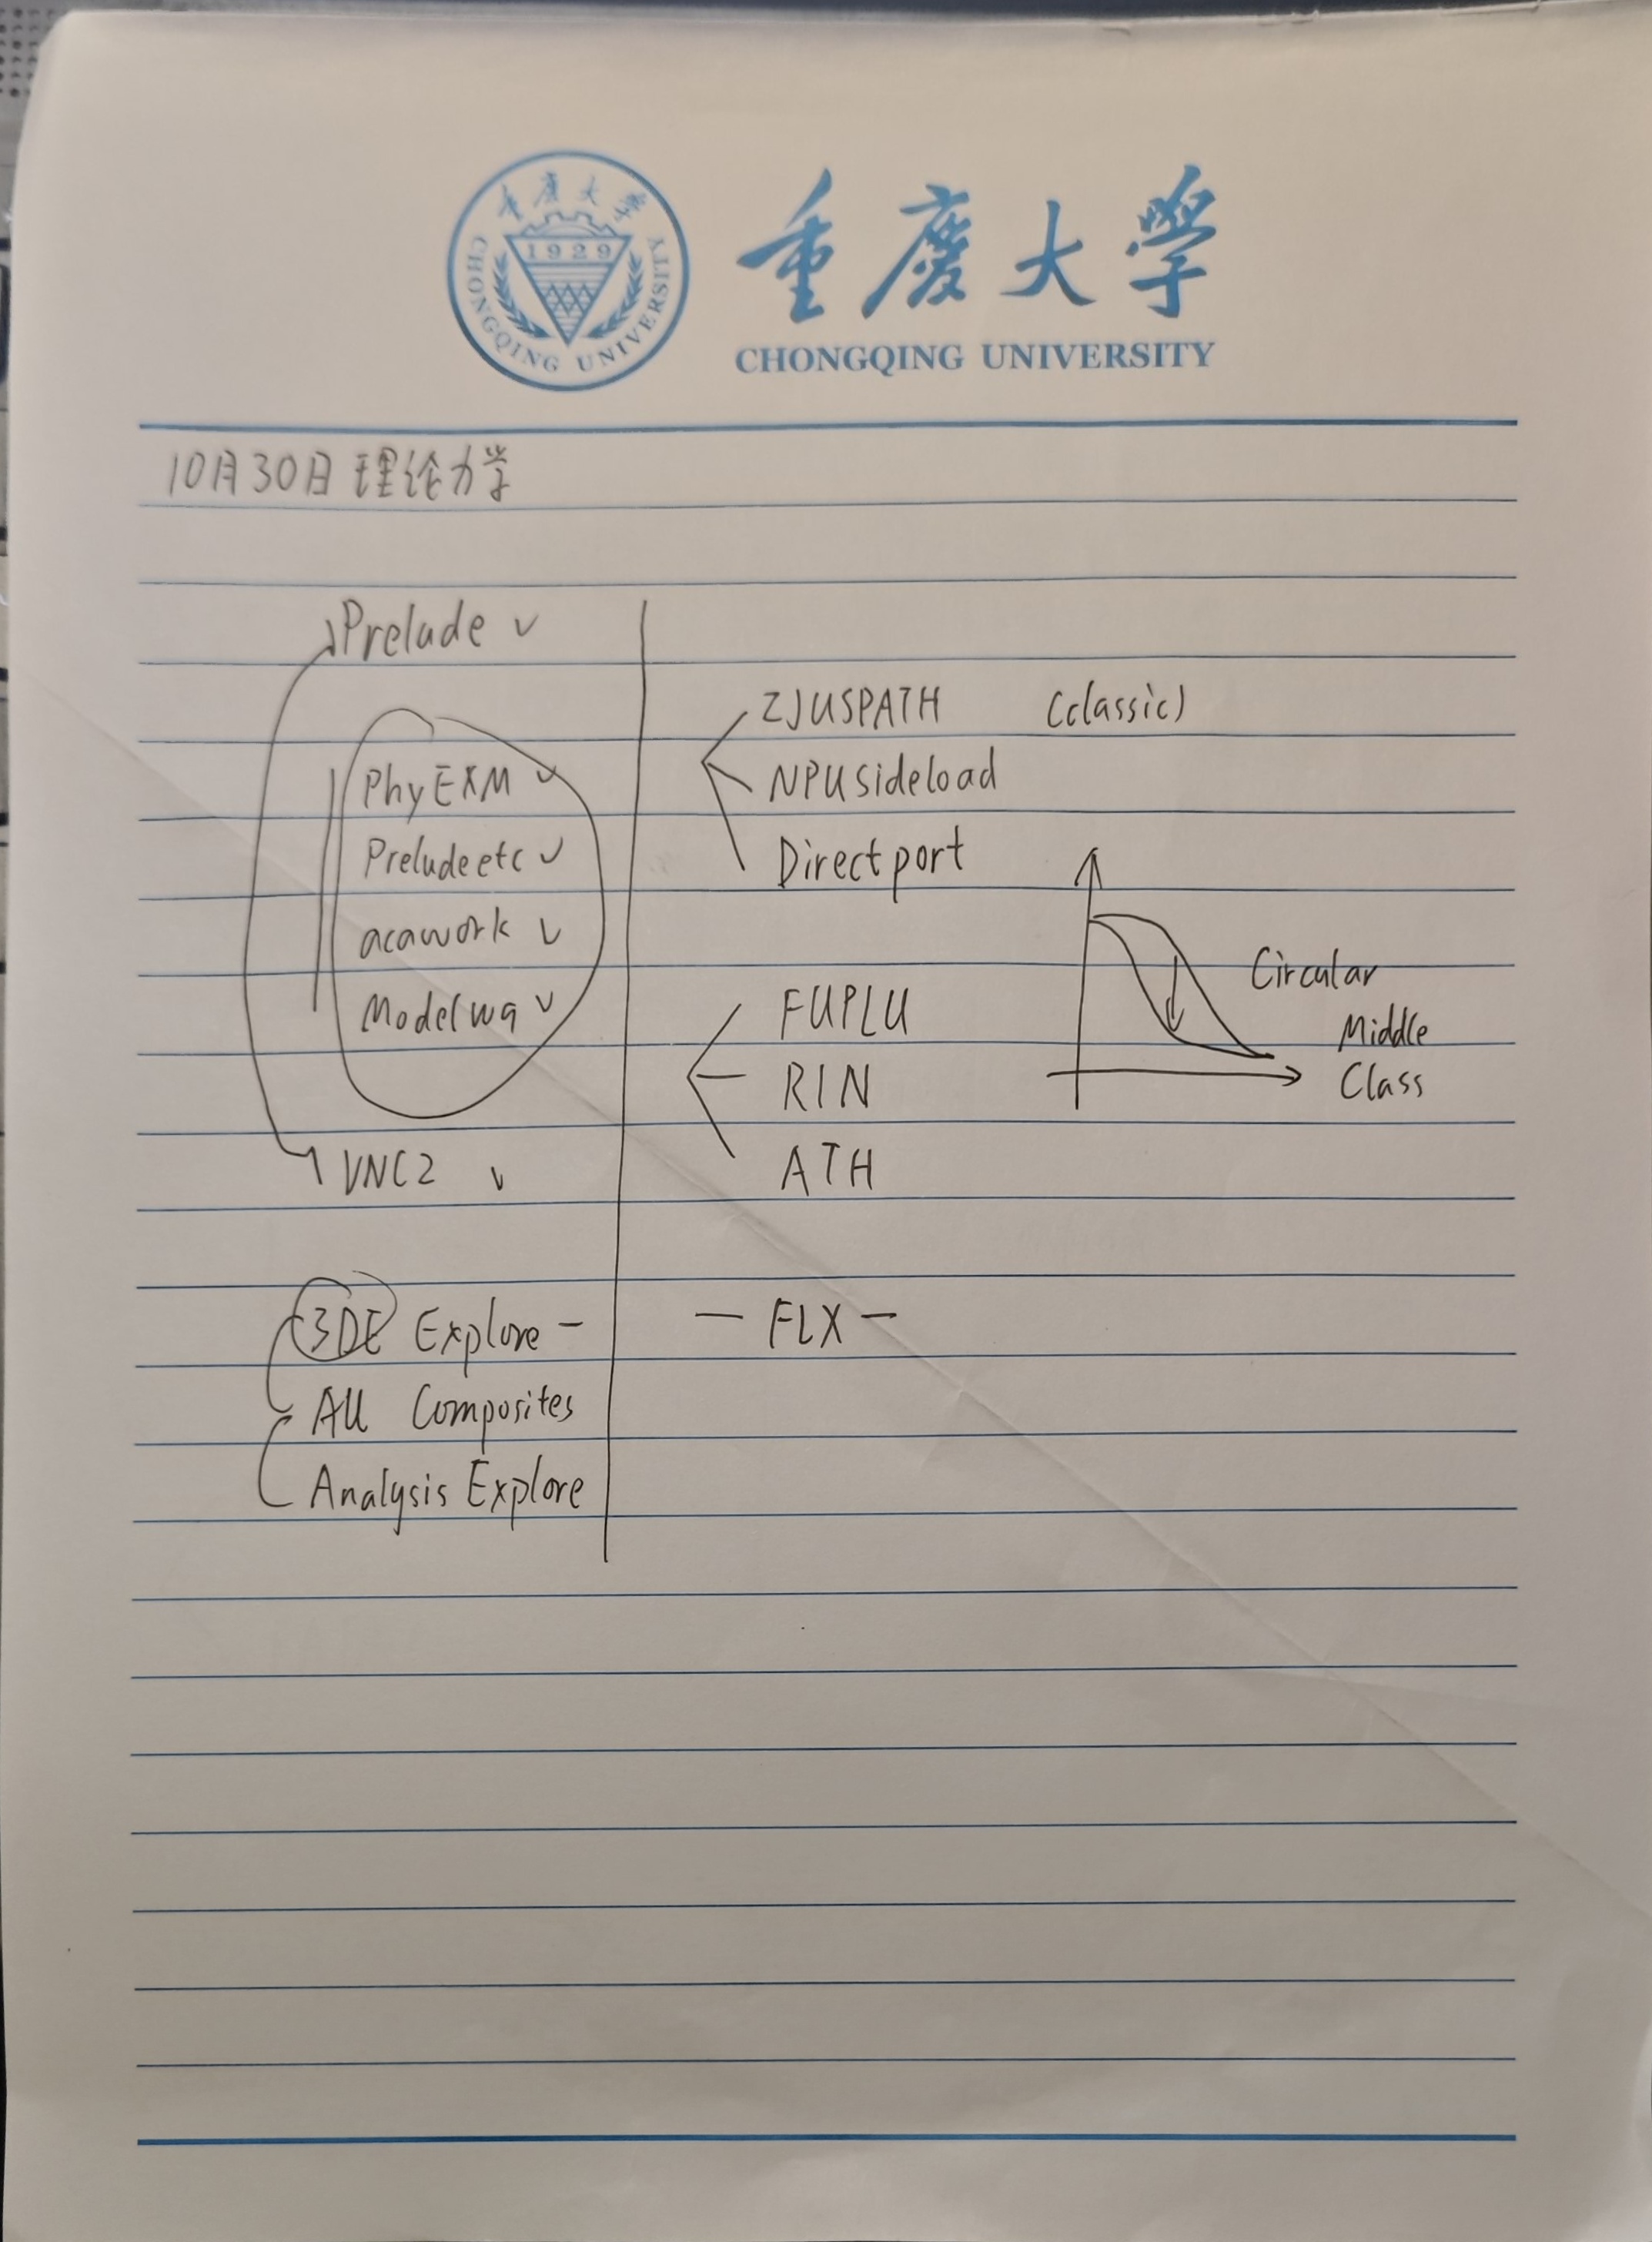 重慶大學
1929
CHONGQING UNIVERSITY
重慶大學
CHONGQING UNIVERSITY
10月30日 理论力学
Prelude
PhyEXM
Preludeetc
acawork
Modelwq
VNC2
3DE Explore -
All Composites
Analysis Explore
ZJUSPATH (classic)
NPUsideload
Directport
FUPLU
RIN
ATH
Circular
Middle
Class
- FLX -